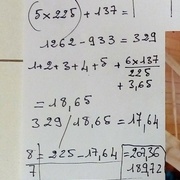 (5×225)+137=
1262-933=329
1+2+3+4+5+ 6×137/225
+3,65
=18,65
329/18,65=17,64
8/7 =225-17,64=207,36
189,72